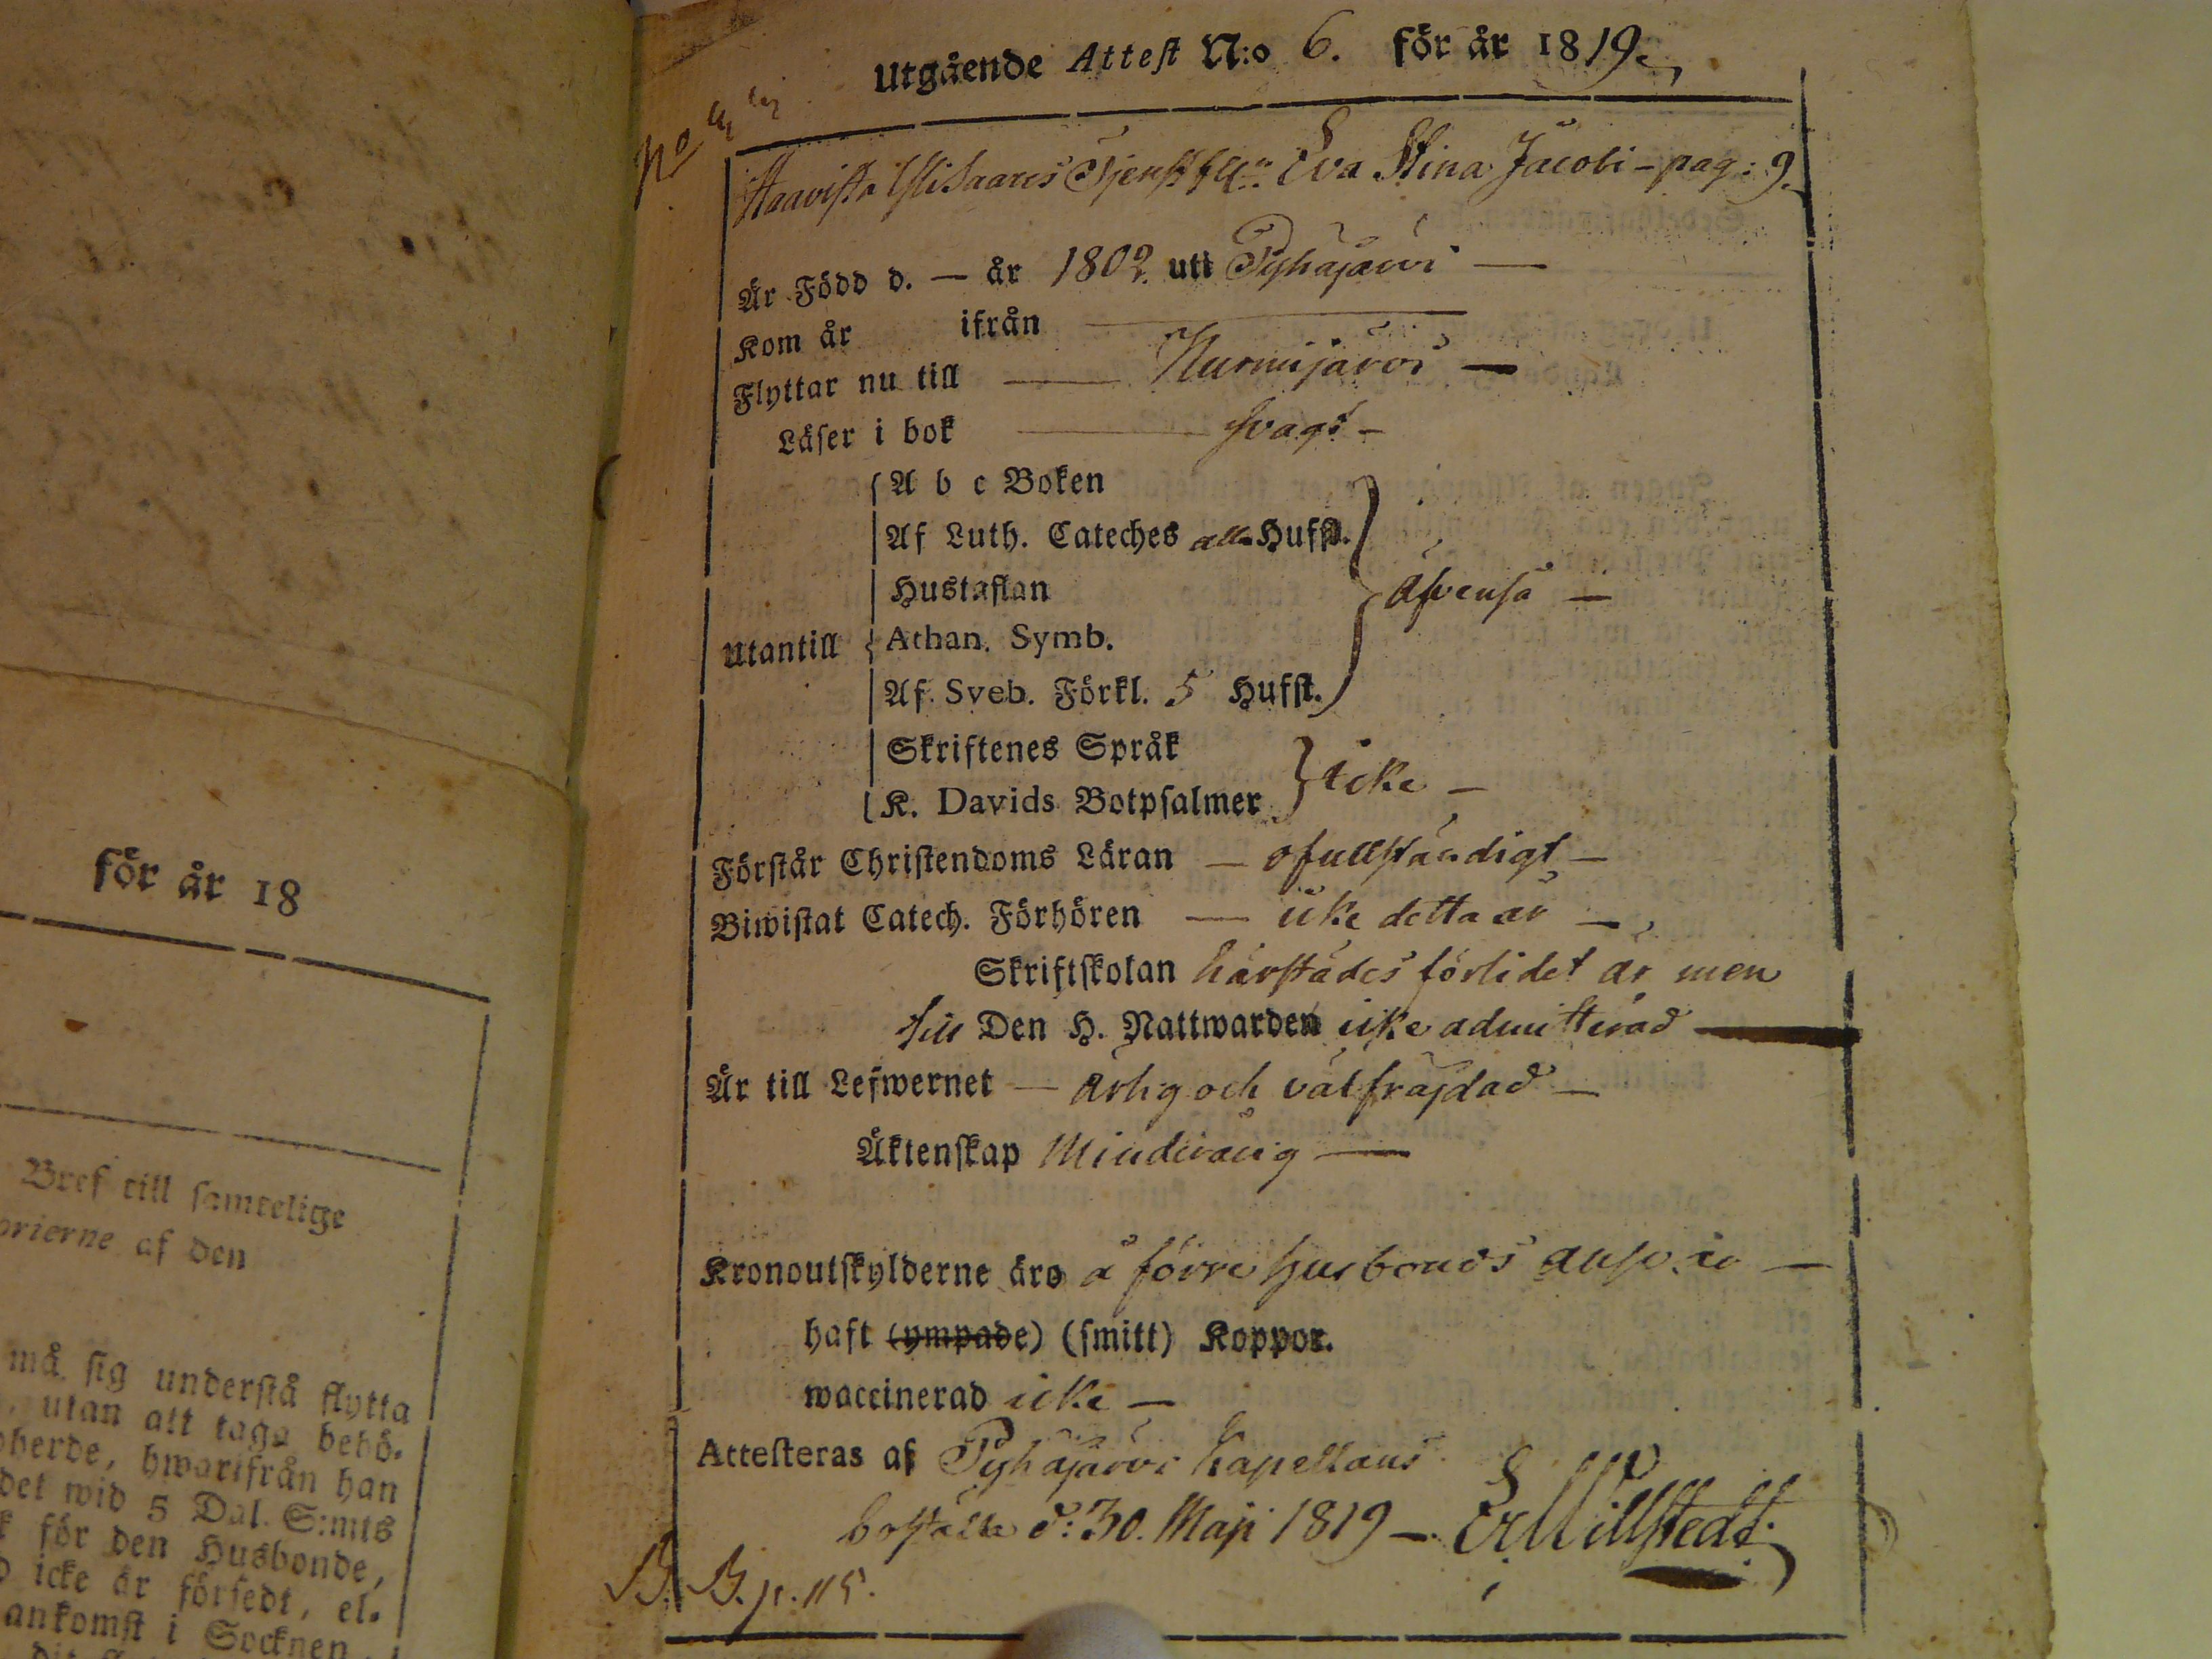 för år 18
Bref till samtelige
orierne af den
må sig understå flytta
utan att taga behö-
herde, hwarifrån han
det wid 5 Dal. S:mts
för den Husbonde,
icke är försedt, el-
ankomst i Socknen
Utgående Attest N:o 6. för år 1819.
No
Haavisto Ylisaares Eva Stina Jacobi - pag: 9.
Är Född d. — år 1802 uti Pyhäjärvi —
Kom år ifrån —
Flyttar nu till — Nurmijärvi —
Läser i bok — svagt —
Utantill
A b c Boken
Af Luth. Cateches alla Hufst.
Hustaflan
Athan. Symb.
Af Sveb. Förkl. 5 Hufst.
äfvenså —
Skriftenes Språk
K. Davids Botpsalmer
icke —
Förstår Christendoms Läran — ofullständigt —
Biwistat Catech. Förhören — icke detta år —
Skriftskolan härstädes förlidet år men
till Den H. Nattwarden icke admitterad —
Är till Lefwernet — ärlig och välfräjdad —
Äktenskap Minderårig —
Kronoutskylderne äro å förre husbonds ansvar —
haft (ympade) (smitt) Koppor.
waccinerad icke —
Attesteras af Pyhäjärvi Kapellans
boställe d: 30. Maji 1819 —
B. B. p. 115.